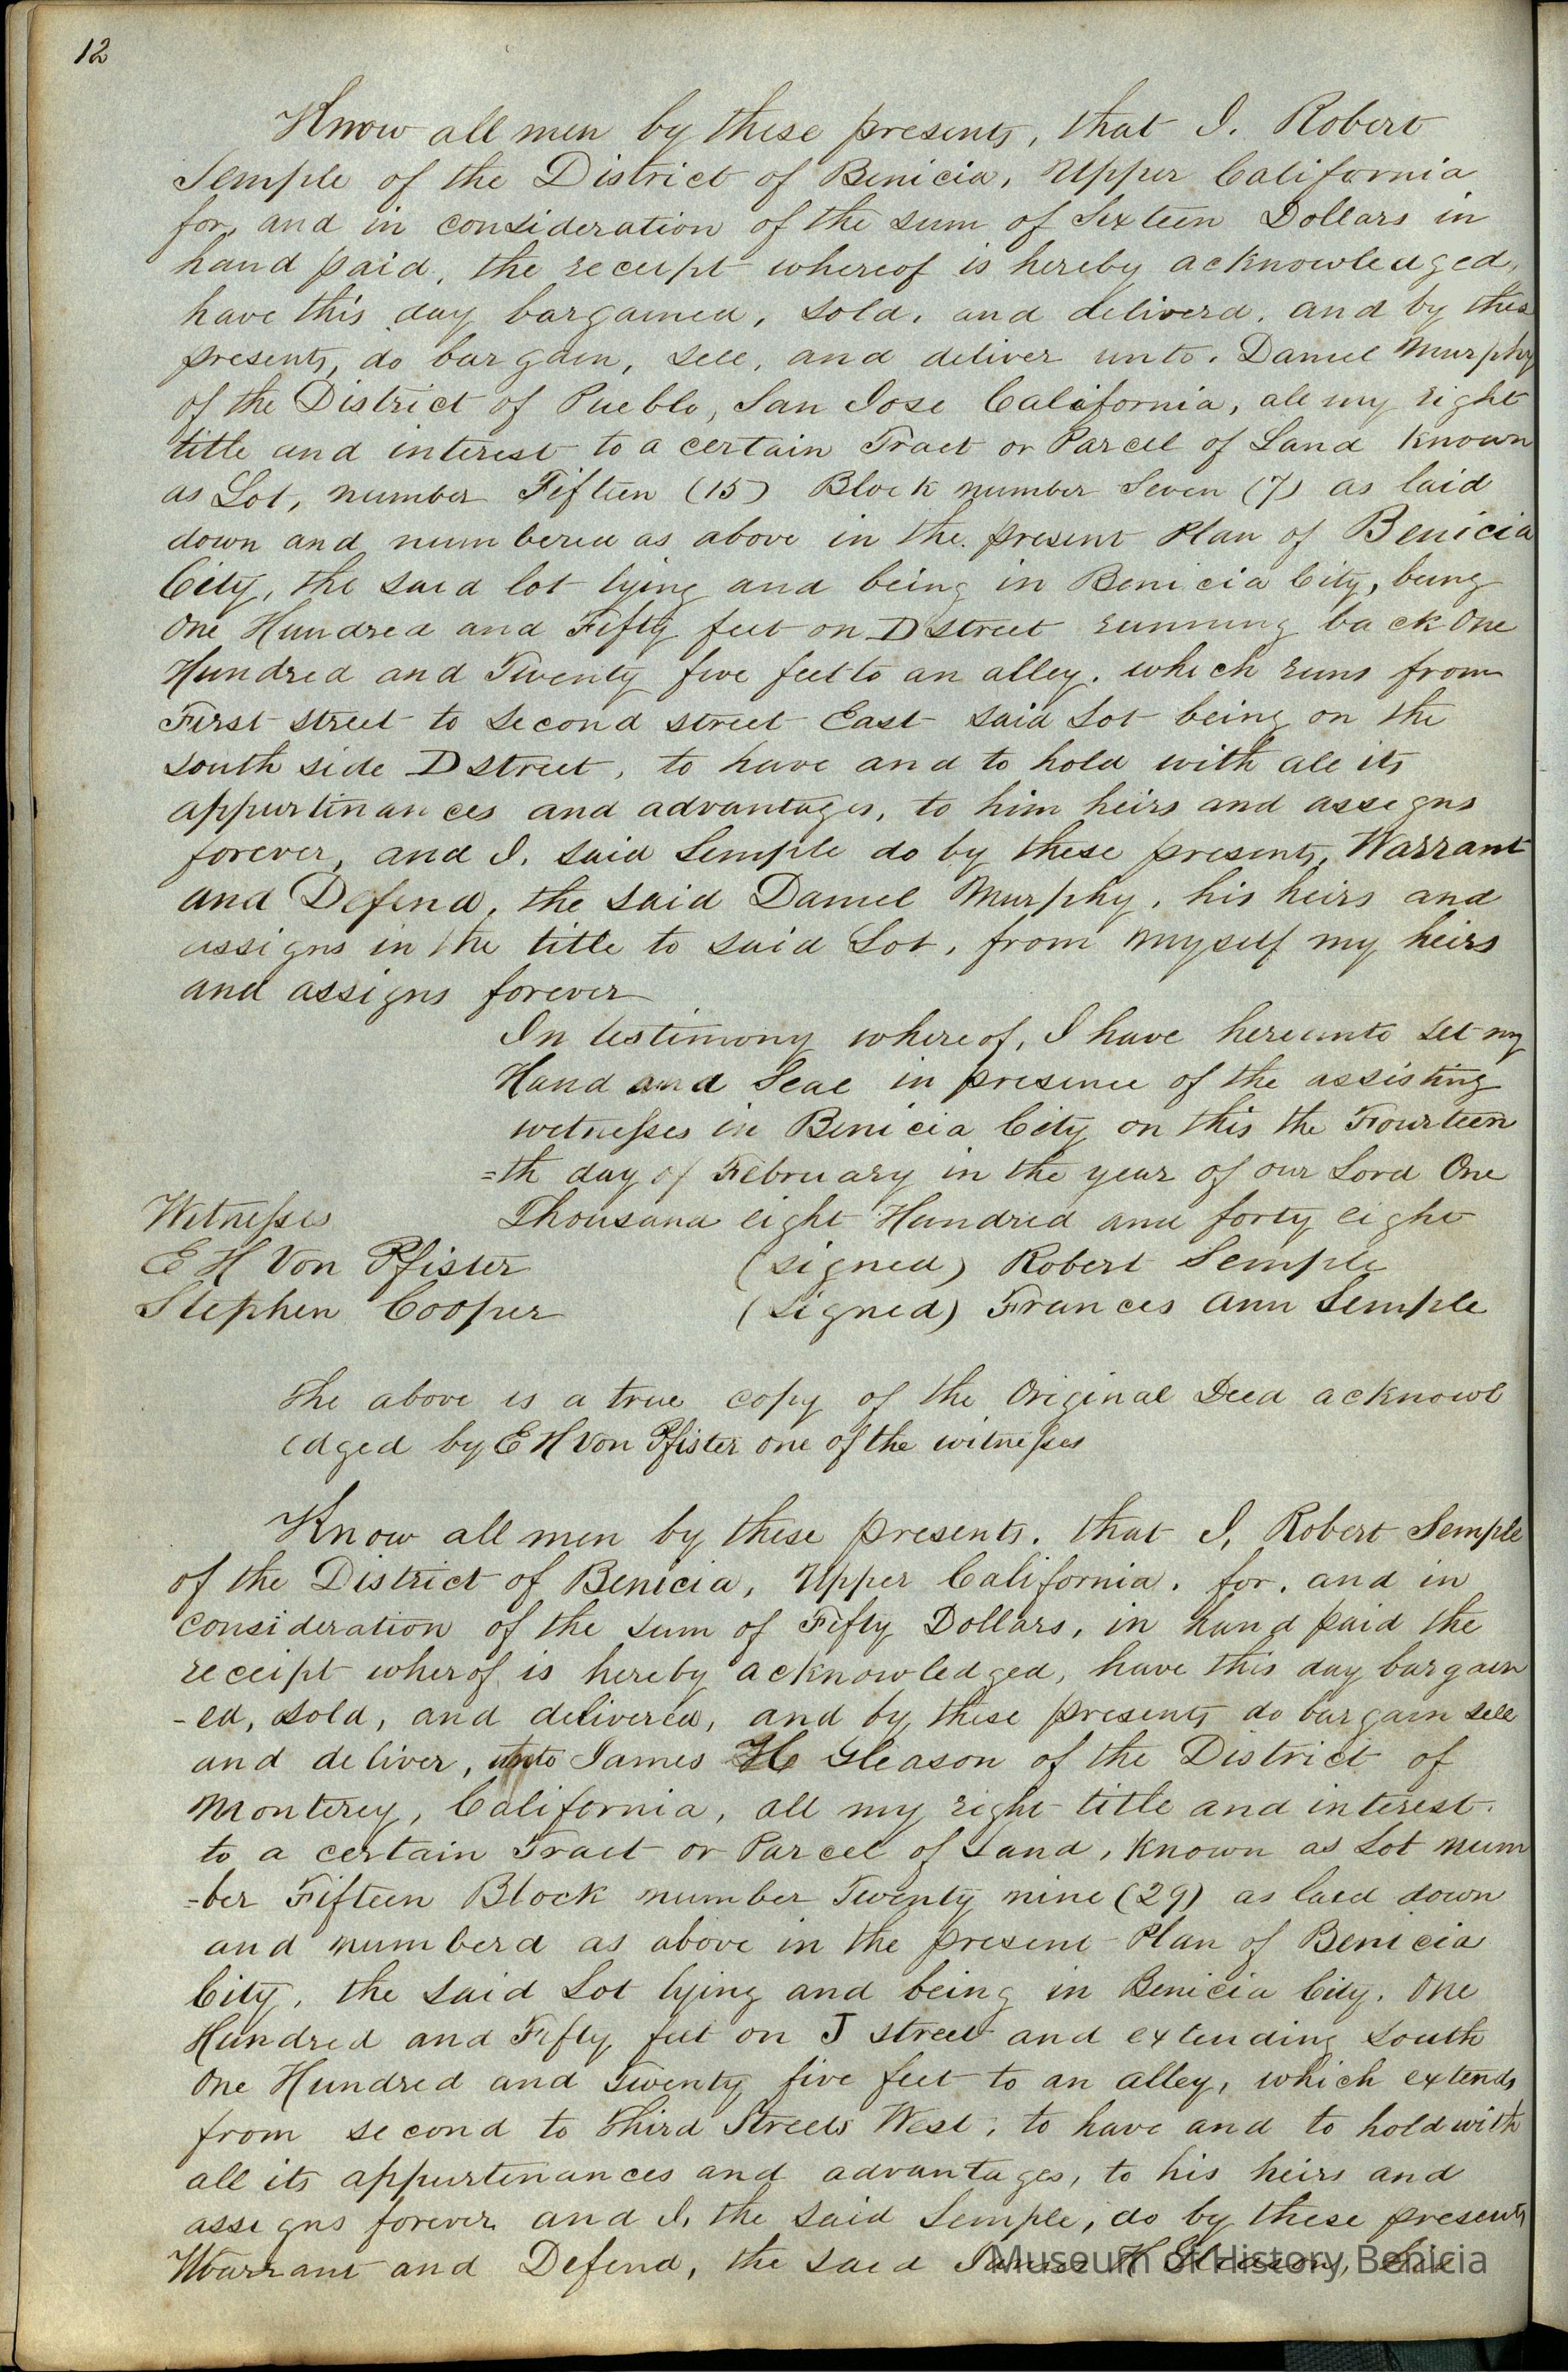 12
Know all men by these presents, that I. Robert
Semple of the District of Benicia, Upper California
for, and in consideration of the sum of Sixteen Dollars in
hand paid, the receipt whereof is hereby acknowledged,
have this day bargained, sold, and deliverd, and by these
presents, do bargain, sell, and deliver unto. Daniel Murphy
of the District of Pueblo, San Jose California, all my right
title and interest to a certain Tract or Parcel of Land known
as Lot, number Fifteen (15) Block number Seven (7) as laid
down and numbered as above in the present Plan of Benicia
City, the said lot lying and being in Benicia City, being
One Hundred and Fifty feet on D street running back One
Hundred and Twenty five feet to an alley. which runs from
First street to second street East said Lot being on the
south side D street, to have and to hold with all its
appurtinances and advantages, to him heirs and assigns
forever, and I. said Semple do by these presents, Warrant
and Defend, the said Daniel Murphy, his heirs and
assigns in the title to said Lot, from myself my heirs
and assigns forever
In testimony whereof, I have hereunto set my
Hand and Seal in presence of the assisting
witnesses in Benicia City on this the Fourteen
=th day of February in the year of our Lord One
Witnesses Thousand eight Hundred and forty eight
E H Von Pfister (signed) Robert Semple
Stephen Cooper (signed) Frances Ann Semple
The above is a true copy of the Original Deed acknowl
edged by E H Von Pfister one of the witnesses
Know all men by these presents. that I, Robert Semple
of the District of Benicia, Upper California. for, and in
consideration of the sum of Fifty Dollars, in hand paid the
receipt wherof is hereby acknowledged, have this day bargain
-ed, sold, and delivered, and by these presents do bargain sell
and deliver, unto James H Gleason of the District of
Monterey, California, all my right title and interest.
to a certain Tract or Parcel of Land, known as Lot num
=ber Fifteen Block number Twenty nine (29) as laid down
and numberd as above in the present Plan of Benicia
City, the said Lot lying and being in Benicia City. One
Hundred and Fifty feet on J street and extending south
One Hundred and Twenty five feet to an alley, which extends
from second to Third Streets West, to have and to hold with
all its appurtenances and advantages, to his heirs and
assigns forever and I, the said Semple, do by these presents
Warrant and Defend, the said James H Gleason, his
Museum of History Benicia